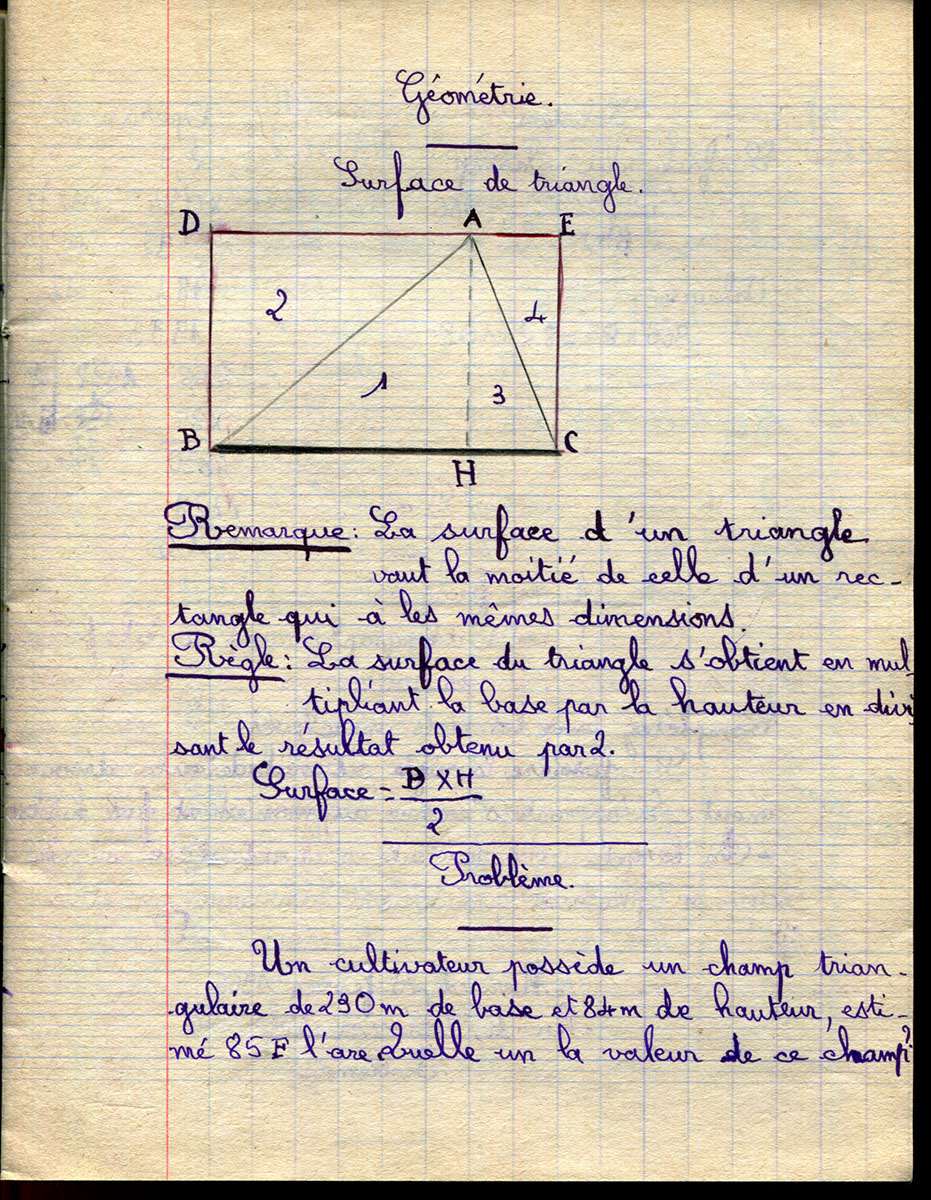 Géométrie.
Surface de triangle.
D A E
2 4
1 3
B H C
Remarque: La surface d'un triangle
vaut la moitié de celle d'un rec-
tangle qui à les mêmes dimensions.
Règle: La surface du triangle s'obtient en mul
tipliant la base par la hauteur en divi
sant le résultat obtenu par 2.
Surface = B X H
2
Problème.
Un cultivateur possède un champ trian-
gulaire de 230m de base et 84m de hauteur, esti-
mé 85F l'are. Quelle un la valeur de ce champ?